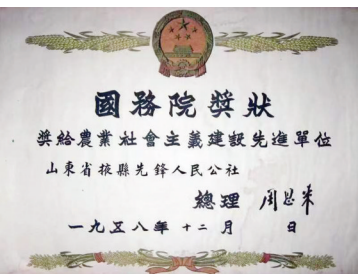 國務院獎狀
獎給農業社會主義建設先進單位
山東省掖縣先鋒人民公社
總理 周恩來
一九五八年十二月 日